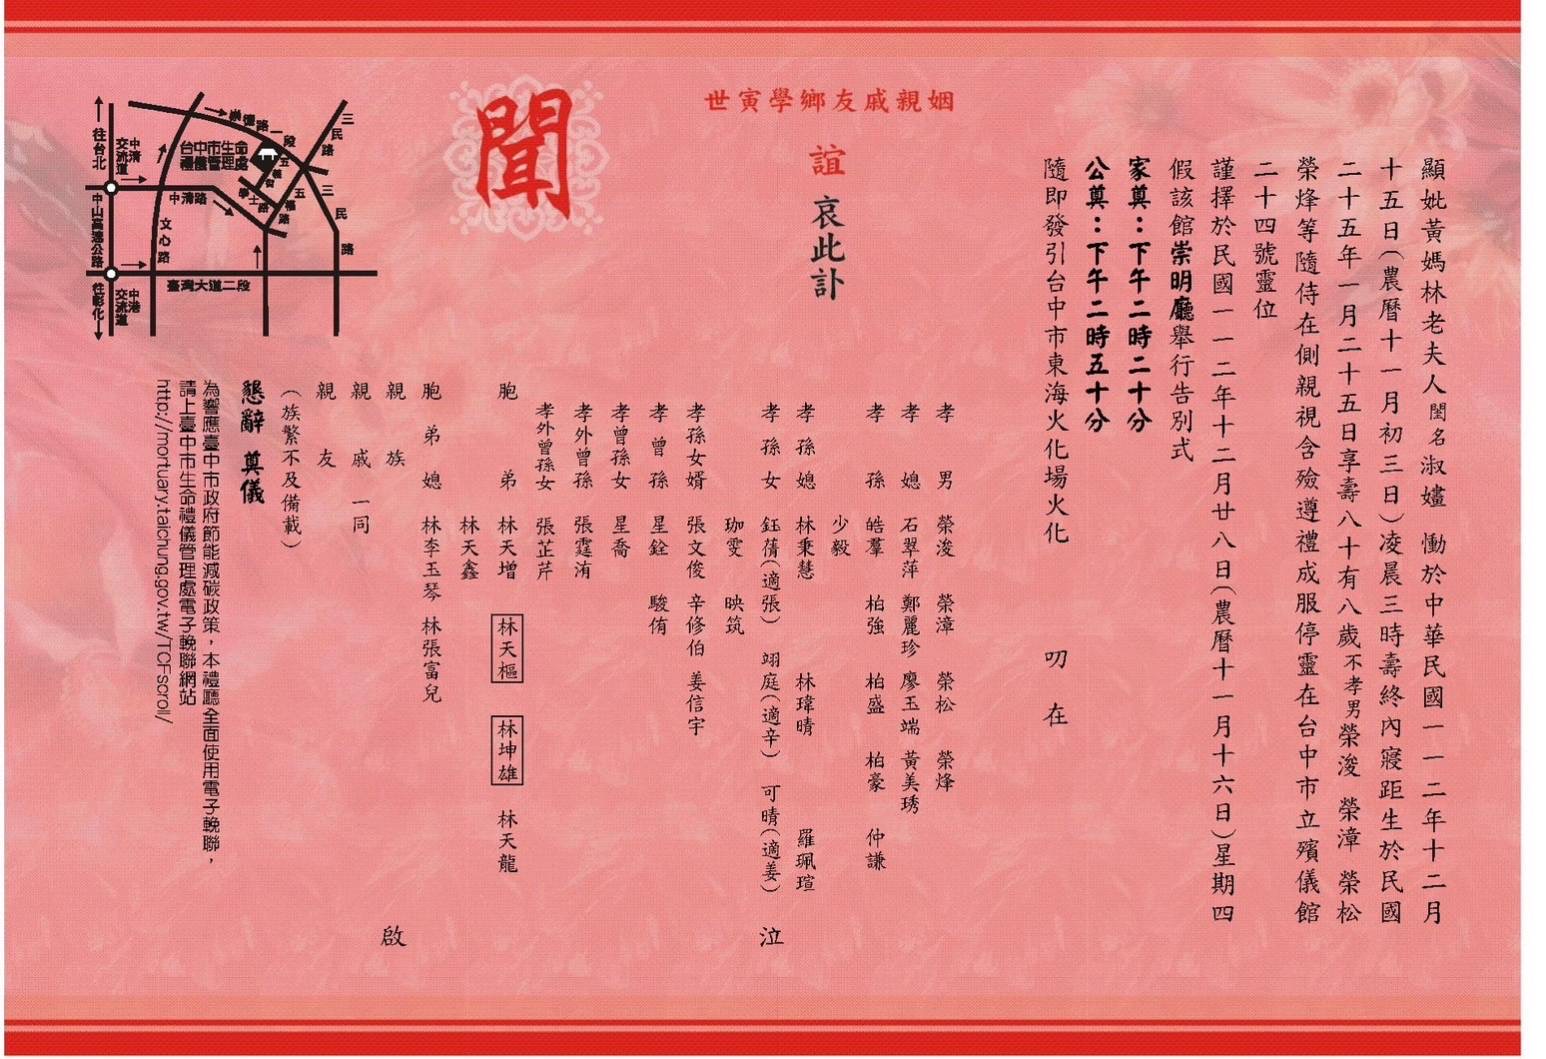 顯妣黃媽林老夫人閨名淑嬧　慟於中華民國一一二年十二月
十五日(農曆十一月初三日)凌晨三時壽終內寢距生於民國
二十五年一月二十五日享壽八十有八歲不孝男榮浚　榮漳　榮松
榮烽等隨侍在側親視含殮遵禮成服停靈在台中市立殯儀館
二十四號靈位
謹擇於民國一一二年十二月廿八日(農曆十一月十六日)星期四
假該館崇明廳舉行告別式
家奠：下午二時二十分
公奠：下午二時五十分
隨即發引台中市東海火化場火化
叨　在
世寅學鄉友戚親姻
誼　哀此訃
聞
孝男　榮浚　榮漳　榮松　榮烽
孝媳　石翠萍　鄭麗珍　廖玉端　黃美琇
孝孫　皓羣　柏強　柏盛　柏豪　仲謙
少毅
孝孫媳　林秉慧　林瑋晴　羅珮瑄
孝孫女　鈺蒨(適張)　翊庭(適辛)　可晴(適姜)　泣
珈雯　映筑
孝孫女婿　張文俊　辛修伯　姜信宇
孝曾孫　星銓　駿侑
孝曾孫女　星喬
孝外曾孫　張霆洧
孝外曾孫女　張芷芹
胞弟　林天增　林天樞　林坤雄　林天龍
林天鑫
胞弟媳　林李玉琴　林張富兒
親族
親戚　一同　啟
親友
(族繁不及備載)
懇辭　奠儀
為響應臺中市政府節能減碳政策，本禮廳全面使用電子輓聯，
請上臺中市生命禮儀管理處電子輓聯網站
http://mortuary.taichung.gov.tw/TCFscroll/
往台北
中清交流道
中山高速公路
往彰化
中港交流道
台中市生命禮儀管理處
崇德路一段
三民路
五義街
學士路
五權路
三民路
中清路
文心路
臺灣大道二段